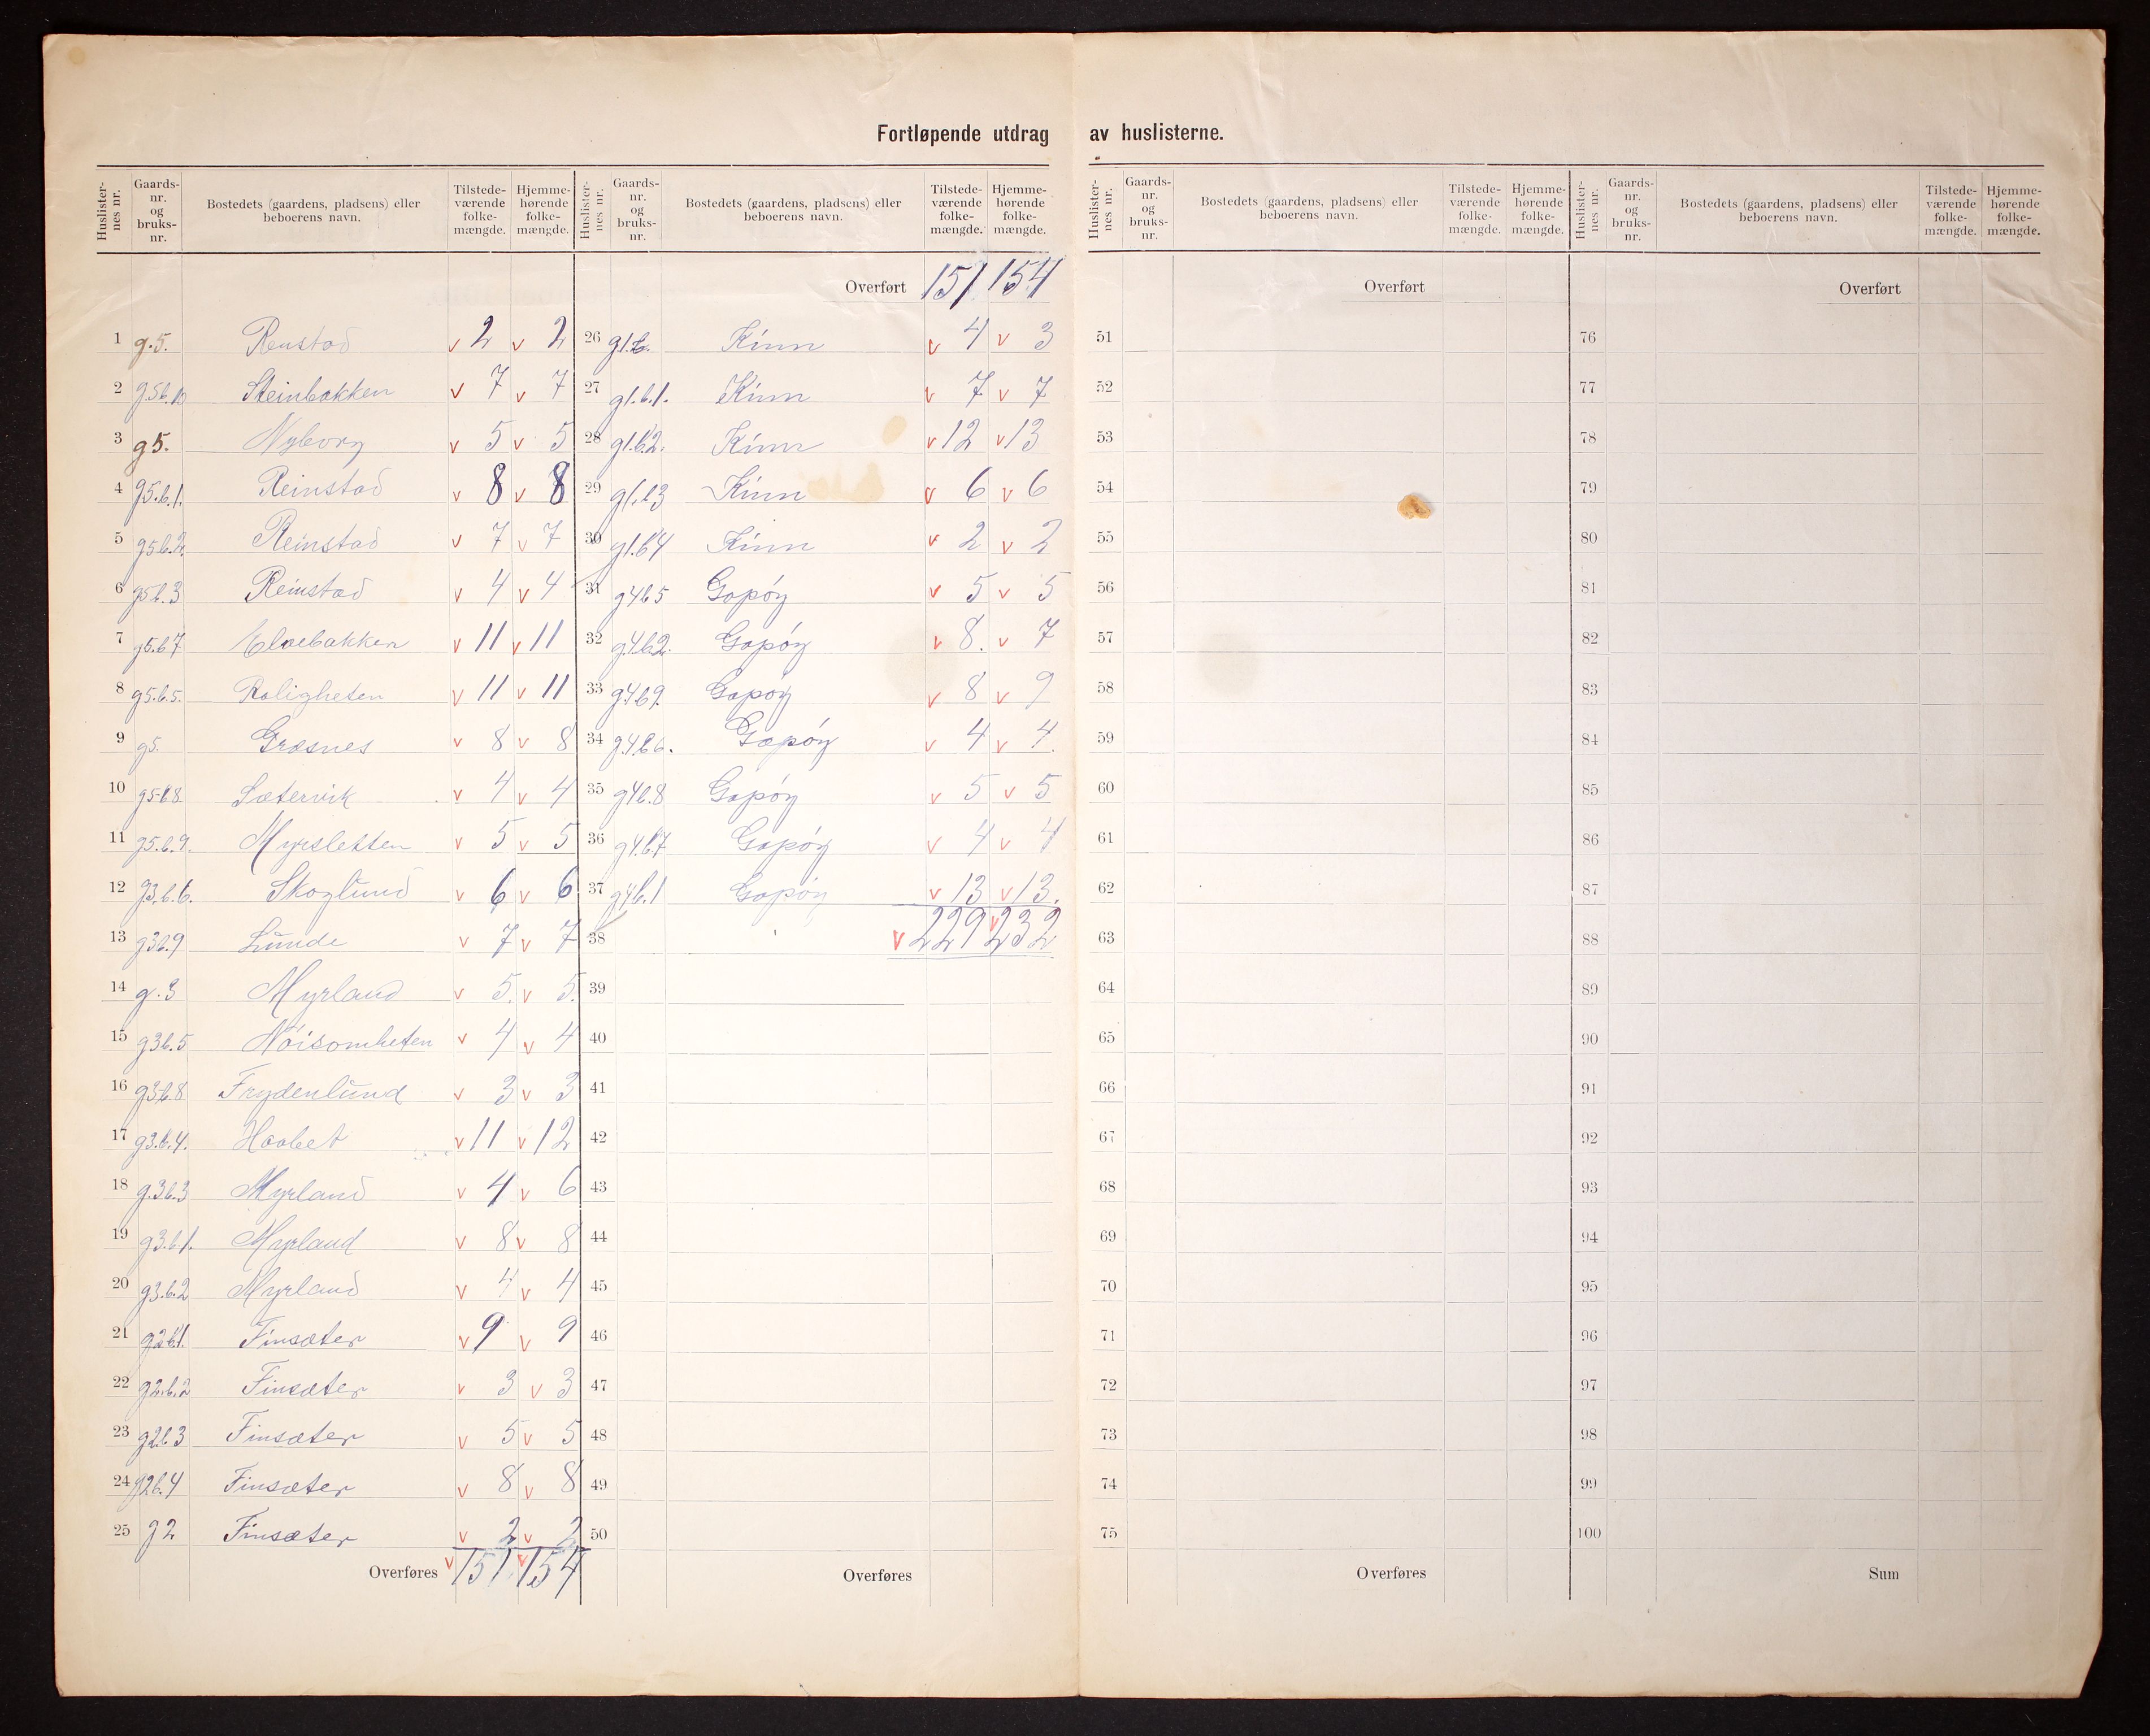 Fortløpende utdrag av huslisterne.
Huslisternes nr. Gaardsnr. og bruksnr. Bostedets (gaardens, pladsens) eller beboerens navn. Tilstedeværende folkemængde. Hjemmehørende folkemængde.
1 g.5. Renstad v 2 v 2
2 g.5 b.10 Steinbakken v 7 v 7
3 g5. Nyborg v 5 v 5
4 g5.b.1. Reinstad v 8 v 8
5 g5b.2. Reinstad v 7 v 7
6 g5b.3 Reinstad v 4 v 4
7 g5.b7 v 11 v 11
8 g5.b.5. Roligheten v 11 v 11
9 g5. Græsnes v 8 v 8
10 g5-b8 Sætervik v 4 v 4
11 g5.b.9. Myrsletten v 5 v 5
12 g3.b.6. Skoglund v 6 v 6
13 g3b.9 Lunde v 7 v 7
14 g.3 Myrland v 5. v 5.
15 g3b.5 Nöisomheten v 4 v 4
16 g3b.8 Frydenlund v 3 v 3
17 g3.b.4. Haabet v 11 v 12
18 g.3b.3 Myrland v 4 v 6
19 g3.b.1. Myrland v 8 v 8
20 g3.b.2 Myrland v 4 v 4
21 g2b.1. Finsæter v 9 v 9
22 g2.b.2 Finsæter v 3 v 3
23 g2b.3 Finsæter v 5 v 5
24 g2b.4 Finsæter v 8 v 8
25 g2 Finsæter v 2 v 2
Overføres v 151 v 154
Huslisternes nr. Gaardsnr. og bruksnr. Bostedets (gaardens, pladsens) eller beboerens navn. Tilstedeværende folkemængde. Hjemmehørende folkemængde.
Overført 151 154
26 g1.b. Kinn v 4 v 3
27 g1.b.1. Kinn v 7 v 7
28 g1.b.2. Kinn v 12 v 13
29 g1.b3 Kinn v 6 v 6
30 g1.b4 Kinn v 2 v 2
31 g4b5 Gapöy v 5 v 5
32 g.4b.2. Gapöy v 8. v 7
33 g4b9. Gapöy v 8 v 9
34 g.4.b6. Gapöy v 4 v 4.
35 g4b.8 Gapöy v 5 v 5
36 g4.b.7 Gapöy v 4 v 4
37 g4b.1 Gapöy v 13 v 13.
38 v 229 v 232
39
40
41
42
43
44
45
46
47
48
49
50
Overføres
Huslisternes nr. Gaardsnr. og bruksnr. Bostedets (gaardens, pladsens) eller beboerens navn. Tilstedeværende folkemængde. Hjemmehørende folkemængde.
Overført
51
52
53
54
55
56
57
58
59
60
61
62
63
64
65
66
67
68
69
70
71
72
73
74
75
Overføres
Huslisternes nr. Gaardsnr. og bruksnr. Bostedets (gaardens, pladsens) eller beboerens navn. Tilstedeværende folkemængde. Hjemmehørende folkemængde.
Overført
76
77
78
79
80
81
82
83
84
85
86
87
88
89
90
91
92
93
94
95
96
97
98
99
100
Sum